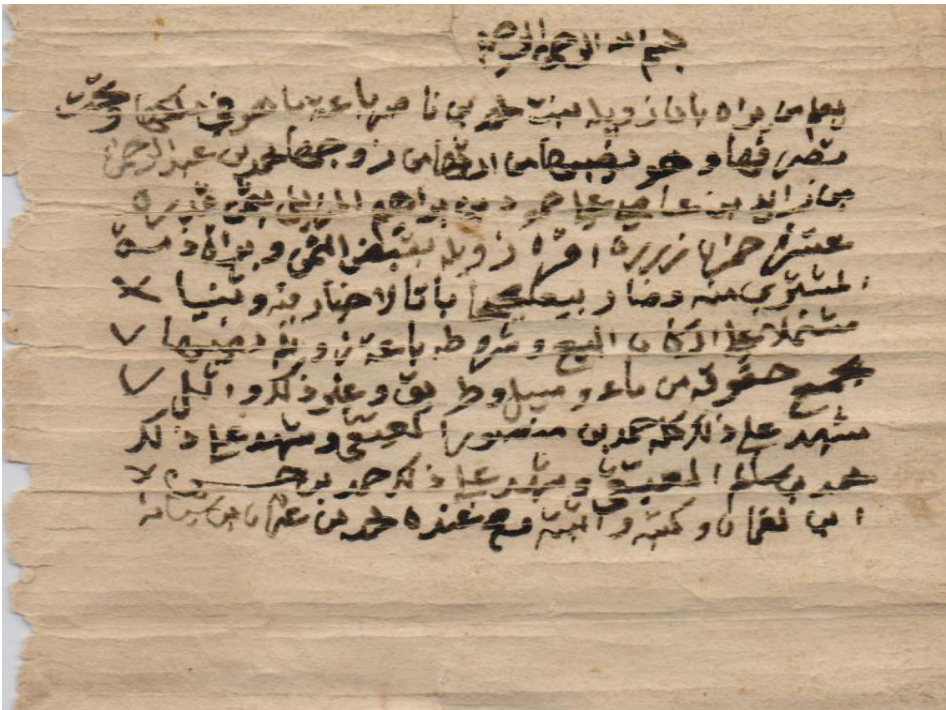 بسم الله الرحمن الرحيم
يعلم من يراه بان زويله بنت حمد بن ناصر باعت ما هو في ملكها وتحت
تصرفها وهو نصيبها من ارثها من زوجها حمد بن عبدالرحمن
بن زايد بن بن براهيم بثمن قدره
عشرة حمران زريره اقرة زويله بقبض الثمن وبراة ذمة
المشتري منه وصار بيع باتا لا خيار فيه ولا ثنيا
مشتملا على اركان البيع وشروطه باعت زويله نصيبها
بجميع حقوقه من ماء وسيل وطريق وغير ذلك
شهد على ذلك كله حمد بن منصور العتيقي وشهد على ذلك
حمد بن سالم العتيقي وشهد على ذلك حمد بن
ابن لقمان وكتبه واثبته عنده حمد بن عثمان بن شبانه